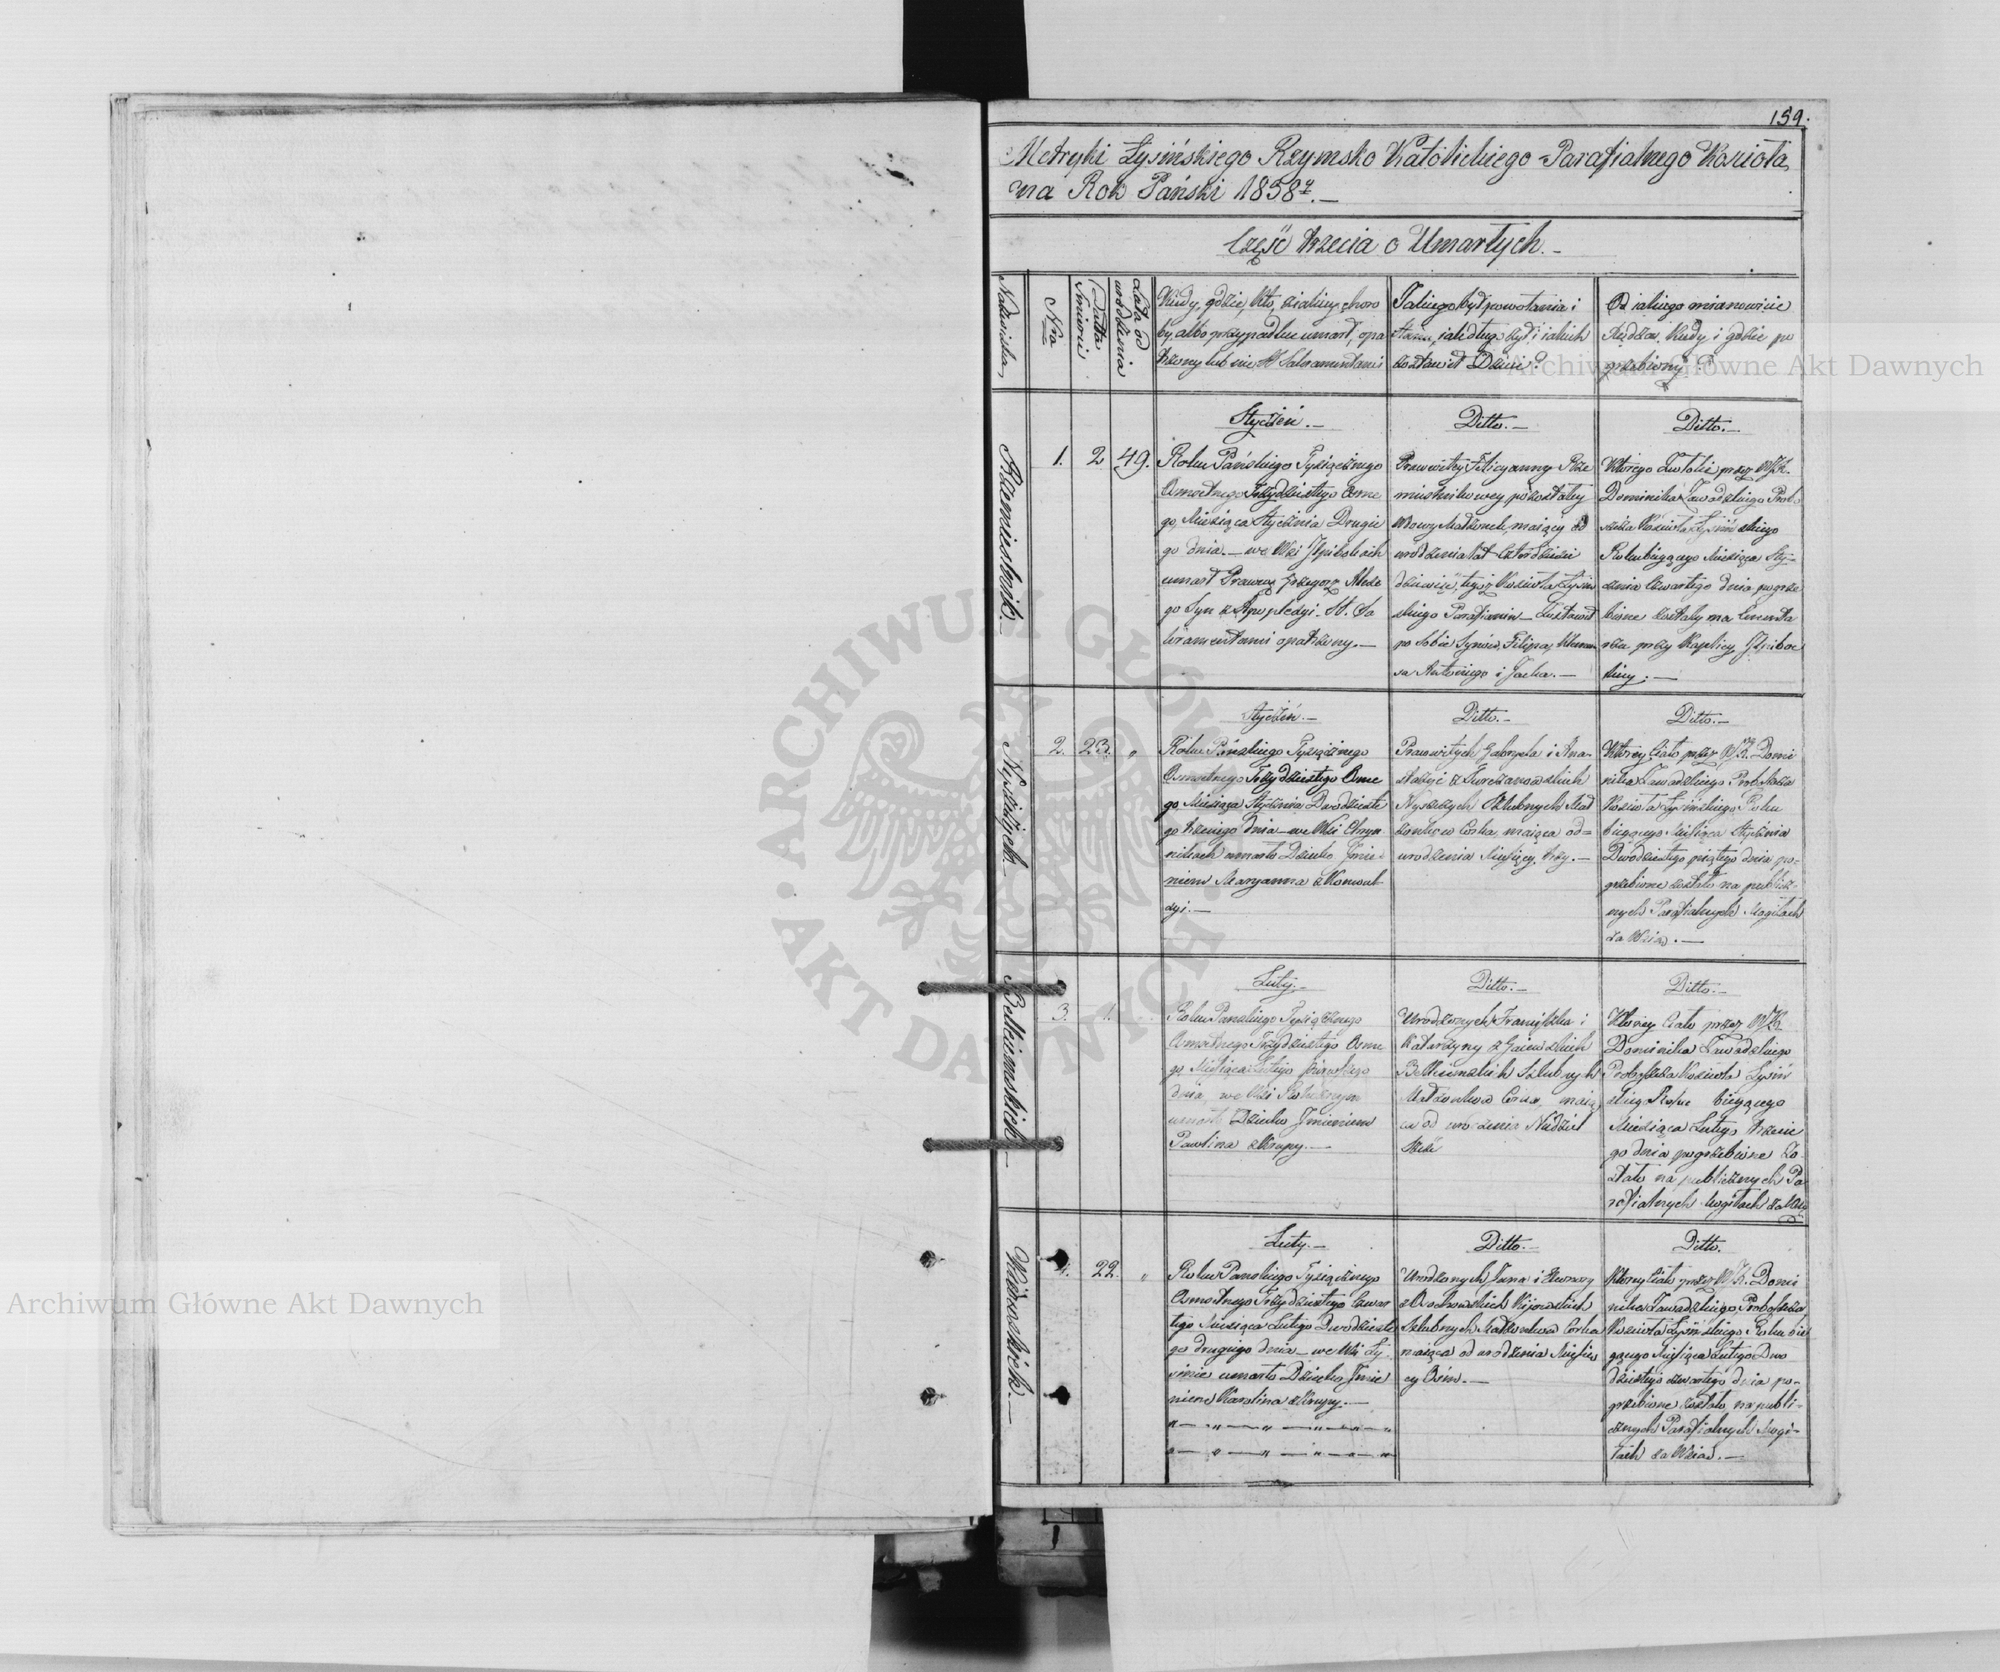 159.
Metryki Łysińskiego Rzymsko Katolickiego Parafialnego Kościoła
na Rok Pański 1838.—
Część trzecia o Umarłych.—
Nazwiska
Nro
Datta Smierci
Lata od urodzenia
Kiedy, gdzie, kto, z iakiey choro
by, albo przypadku umarł, opa
trzony lub nie SS. Sakramentami
Jakiego był powołania i
stanu, iak długo żył, i iakich
zostawił Dzieci?
Od iakiego mianowicie
Xiędza, kiedy i gdzie po
grzebiony?
Rzemiesbnik.—
1.
2
49.
Styczeń.—
Roku Pańskiego Tysiącznego
Osmsetnego Trzydziestego Osme
go, Miesiąca Stycznia Drugie
go dnia.— we Wsi
umarł Pracowity Grzegorz
go Syn z Apoplexyi. SS. Sa
kramentami opatrzony.—
Ditto.—
Pracowitey Felicyanny Rze
pozostałey
Wdowy Małżonek, maiący od
urodzenia lat Czterdzieści
dziewięć, tegoż Kościoła Łysiń
skiego Parafianin— Zostawił
po Sobie Synów, Filipa,
Antoniego i Jacka.—
Ditto.—
Którego Zwłoki przez WJX.
Dominika Zawadzkiego Prob
oszcza Kościoła Łysińskiego
Roku bieżącego Miesiąca Sty
cznia Czwartego dnia pogrze
bione zostały na Cmenta
rzu przy Kaplicy
Nyskich.—
2.
23.
"
Styczeń.—
Roku Pańskiego Tysiącznego
Osmsetnego Trzydziestego Osme
go Miesiąca Stycznia Dwudzieste
go trzeciego dnia— we Wsi Chryn
nikach umarło Dziecko Jmie
niem Maryanna z Konwul
syi.—
Ditto.—
Pracowitych Gabryela i Ana
stazyi z
Szlubnych Mał
żonków Corka, maiąca od=
urodzenia Miesięcy trzy.—
Ditto.—
Którey Ciało przez WJX. Domi
nika Zawadzkiego Proboszcza
Kościoła Łysińskiego, Roku
bieżącego Miesiąca Stycznia
Dwudziestego piątego dnia po-
grzebione zostało na publicz-
nych Parafialnych Mogiłach
za Wsią.—
Bełkimskich—
3.
1.
Luty.—
Roku Pańskiego Tysiącznego
Osmsetnego Trzydziestego Osme
go Miesiąca Lutego pierwszego
dnia, we Wsi
umarło Dziecko Jmieniem
Pawlina z Krupy.—
Ditto.—
Urodzonych Franciszka i
Katarzyny z Gaiewskich
Szlubnych
Małżonków Corka, maią
ca od urodzenia Niedziel
Ditto.—
Którey Ciało przez WJX
Dominika Zawadzkiego
Proboszcza Kościoła Łysiń
skiego Roku bieżącego
Miesiąca Lutego trzecie
go dnia pogrzebione zo
stało na publicznych Pa
rafialnych Mogiłach za Wsią
22.
"
Luty.—
Roku Pańskiego Tysiącznego
Osmsetnego Trzydziestego
tego Miesiąca Lutego Dwudzieste
go drugiego dnia— we Wsi Ły
sinie umarło Dziecko Jmie
niem Karolina z Krupy.—
Ditto.—
Urodzonych Jana i
Szlubnych Małżonków Corka
maiąca od urodzenia Miesię
cy Osm.—
Ditto.
Którey Ciało przez WJX. Domi
nika Zawadzkiego, Proboszcza
Kościoła Łysińskiego, Roku bie
żącego Miesiąca Lutego Dwu
dziestego czwartego dnia po-
grzebione zostało, na publi-
cznych Parafialnych Mogi-
łach za Wsią.—
Archiwum Główne Akt Dawnych
Archiwum Główne Akt Dawnych
ARCHIWUM GŁÓWNE
AKT DAWNYCH